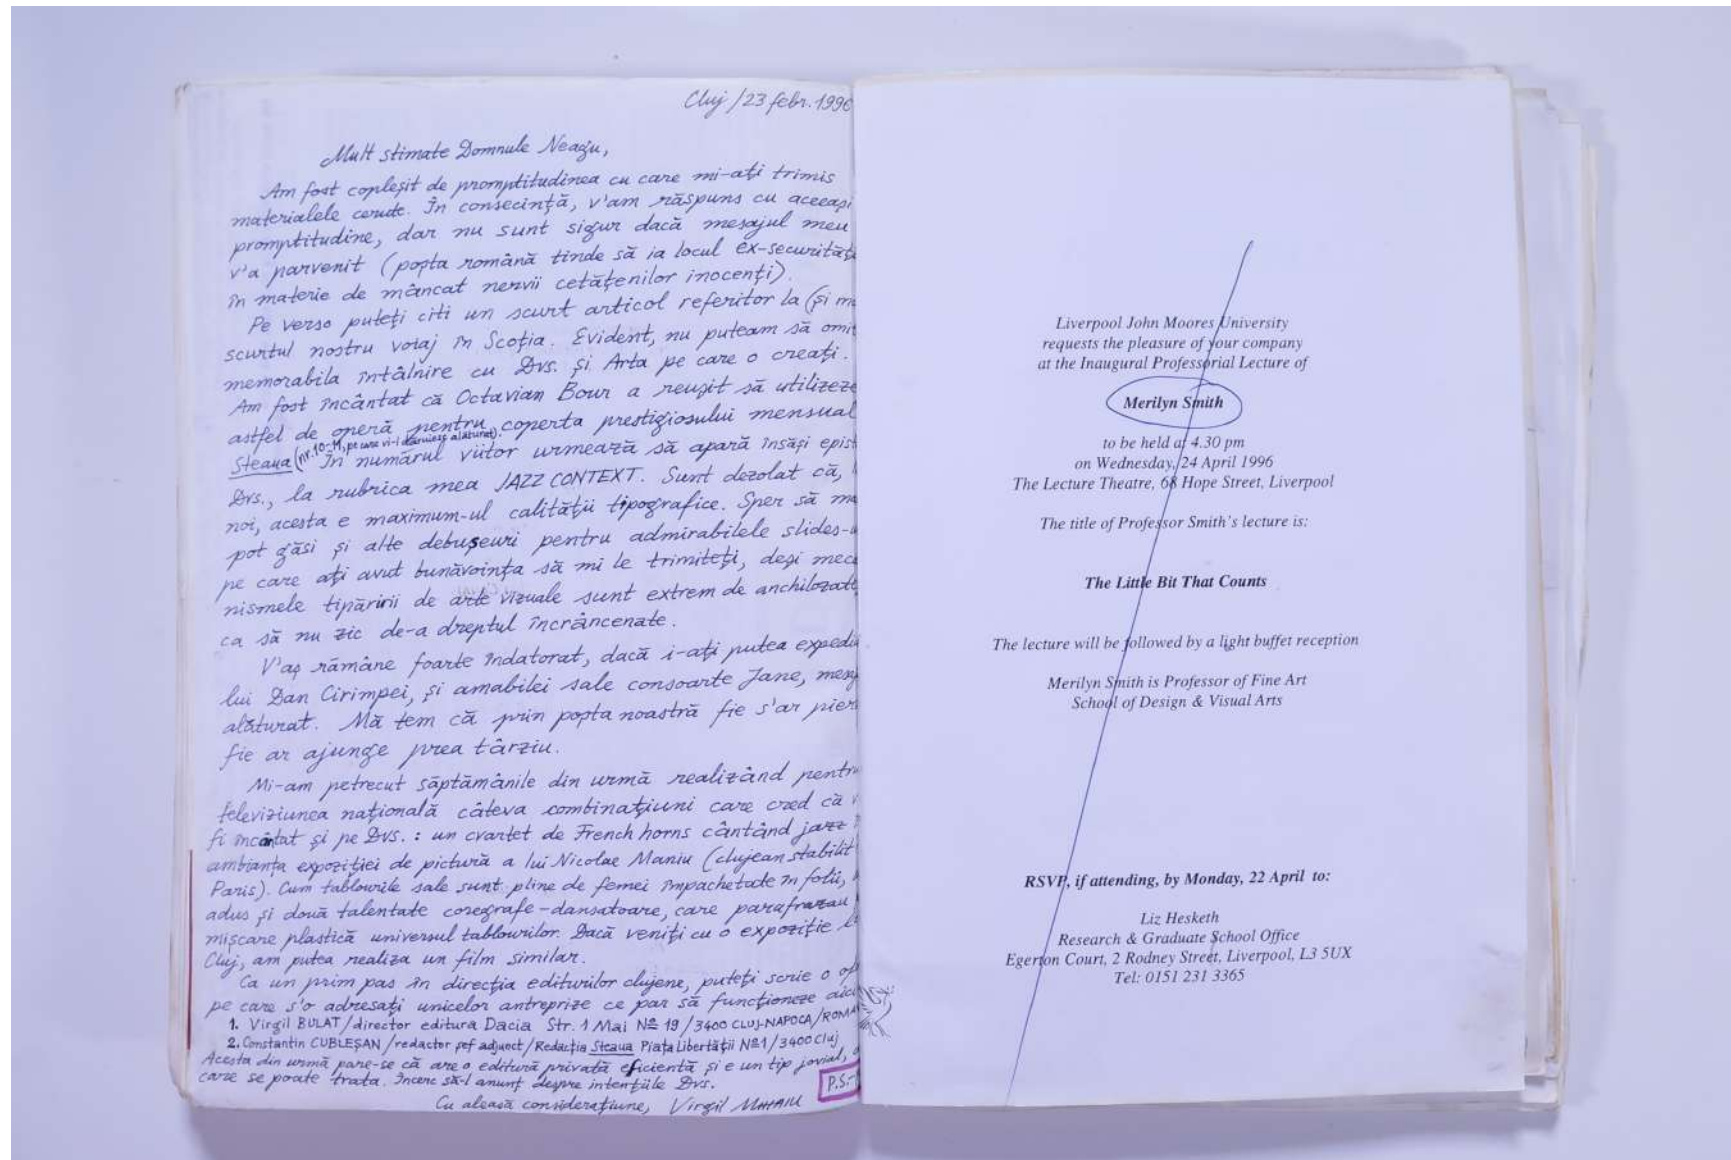 Cluj /23 febr. 1996
Mult stimate Domnule Neagu,
Am fost copleşit de promptitudinea cu care mi-aţi trimis
materialele cerute. În consecinţă, v'am răspuns cu aceeaşi
promptitudine, dar nu sunt sigur dacă mesajul meu
v'a parvenit (poşta română tinde să ia locul ex-securităţi
în materie de mâncat nervii cetăţenilor inocenţi).
Pe verso puteţi citi un scurt articol referitor la (şi
scurtul nostru voiaj în Scoţia. Evident, nu puteam să omit
memorabila întâlnire cu Dvs. şi Arta pe care o creaţi.
Am fost încântat că Octavian Bour a reuşit să utilizeze
astfel de operă pentru coperta prestigiosului mensual
Steaua (nr. 10-11, pe care vi-l dăruiesc alăturat). În numărul viitor urmează să apară însăşi epist
Dvs., la rubrica mea JAZZ CONTEXT. Sunt dezolat că,
noi, acesta e maximum-ul calităţii tipografice. Sper să
pot găsi şi alte debuşeuri pentru admirabilele slides-u
pe care aţi avut bunăvoinţa să mi le trimiteţi, deşi meca
nismele tipăririi de arte vizuale sunt extrem de anchilozate
ca să nu zic de-a dreptul încrâncenate.
V'aş rămâne foarte îndatorat, dacă i-aţi putea expedia
lui Dan Cirimpei, şi amabilei sale consoarte Jane, mesa
alăturat. Mă tem că prin poşta noastră fie s'ar pier
fie ar ajunge prea târziu.
Mi-am petrecut săptămânile din urmă realizând pentru
televiziunea naţională câteva combinaţiuni care cred că v
fi încântat şi pe Dvs. : un cvartet de French horns cântând jazz
ambianţa expoziţiei de pictură a lui Nicolae Maniu (clujean stabilit
Paris). Cum tablourile sale sunt pline de femei împachetate în folii,
adus şi două talentate coregrafe-dansatoare, care parafrazau
mişcare plastică universul tablourilor. Dacă veniţi cu o expoziţie la
Cluj, am putea realiza un film similar.
Ca un prim pas în direcţia editurilor clujene, puteţi scrie o of
pe care s'o adresaţi unicelor antreprize ce par să funcţioneze aici
1. Virgil BULAT/director editura Dacia Str. 1 Mai Nº 19 /3400 CLUJ-NAPOCA/ROMA
2. Constantin CUBLEŞAN /redactor şef adjunct/Redacţia Steaua Piaţa Libertăţii Nº1/3400 Cluj
Acesta din urmă pare-se că are o editură privată eficientă şi e un tip jovial,
care se poate trata. Încerc să-l anunţ despre intenţiile Dvs.
P.S.-
Cu aleasă consideraţiune, Virgil MIHAIU
Liverpool John Moores University
requests the pleasure of your company
at the Inaugural Professorial Lecture of
Merilyn Smith
to be held at 4.30 pm
on Wednesday, 24 April 1996
The Lecture Theatre, 68 Hope Street, Liverpool
The title of Professor Smith's lecture is:
The Little Bit That Counts
The lecture will be followed by a light buffet reception
Merilyn Smith is Professor of Fine Art
School of Design & Visual Arts
RSVP, if attending, by Monday, 22 April to:
Liz Hesketh
Research & Graduate School Office
Egerton Court, 2 Rodney Street, Liverpool, L3 5UX
Tel: 0151 231 3365